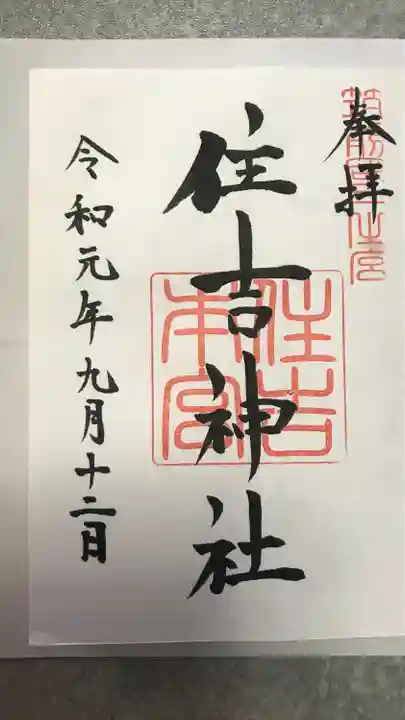 奉拝
筑前國一之宮
住吉神社
住吉本宮
令和元年九月十二日